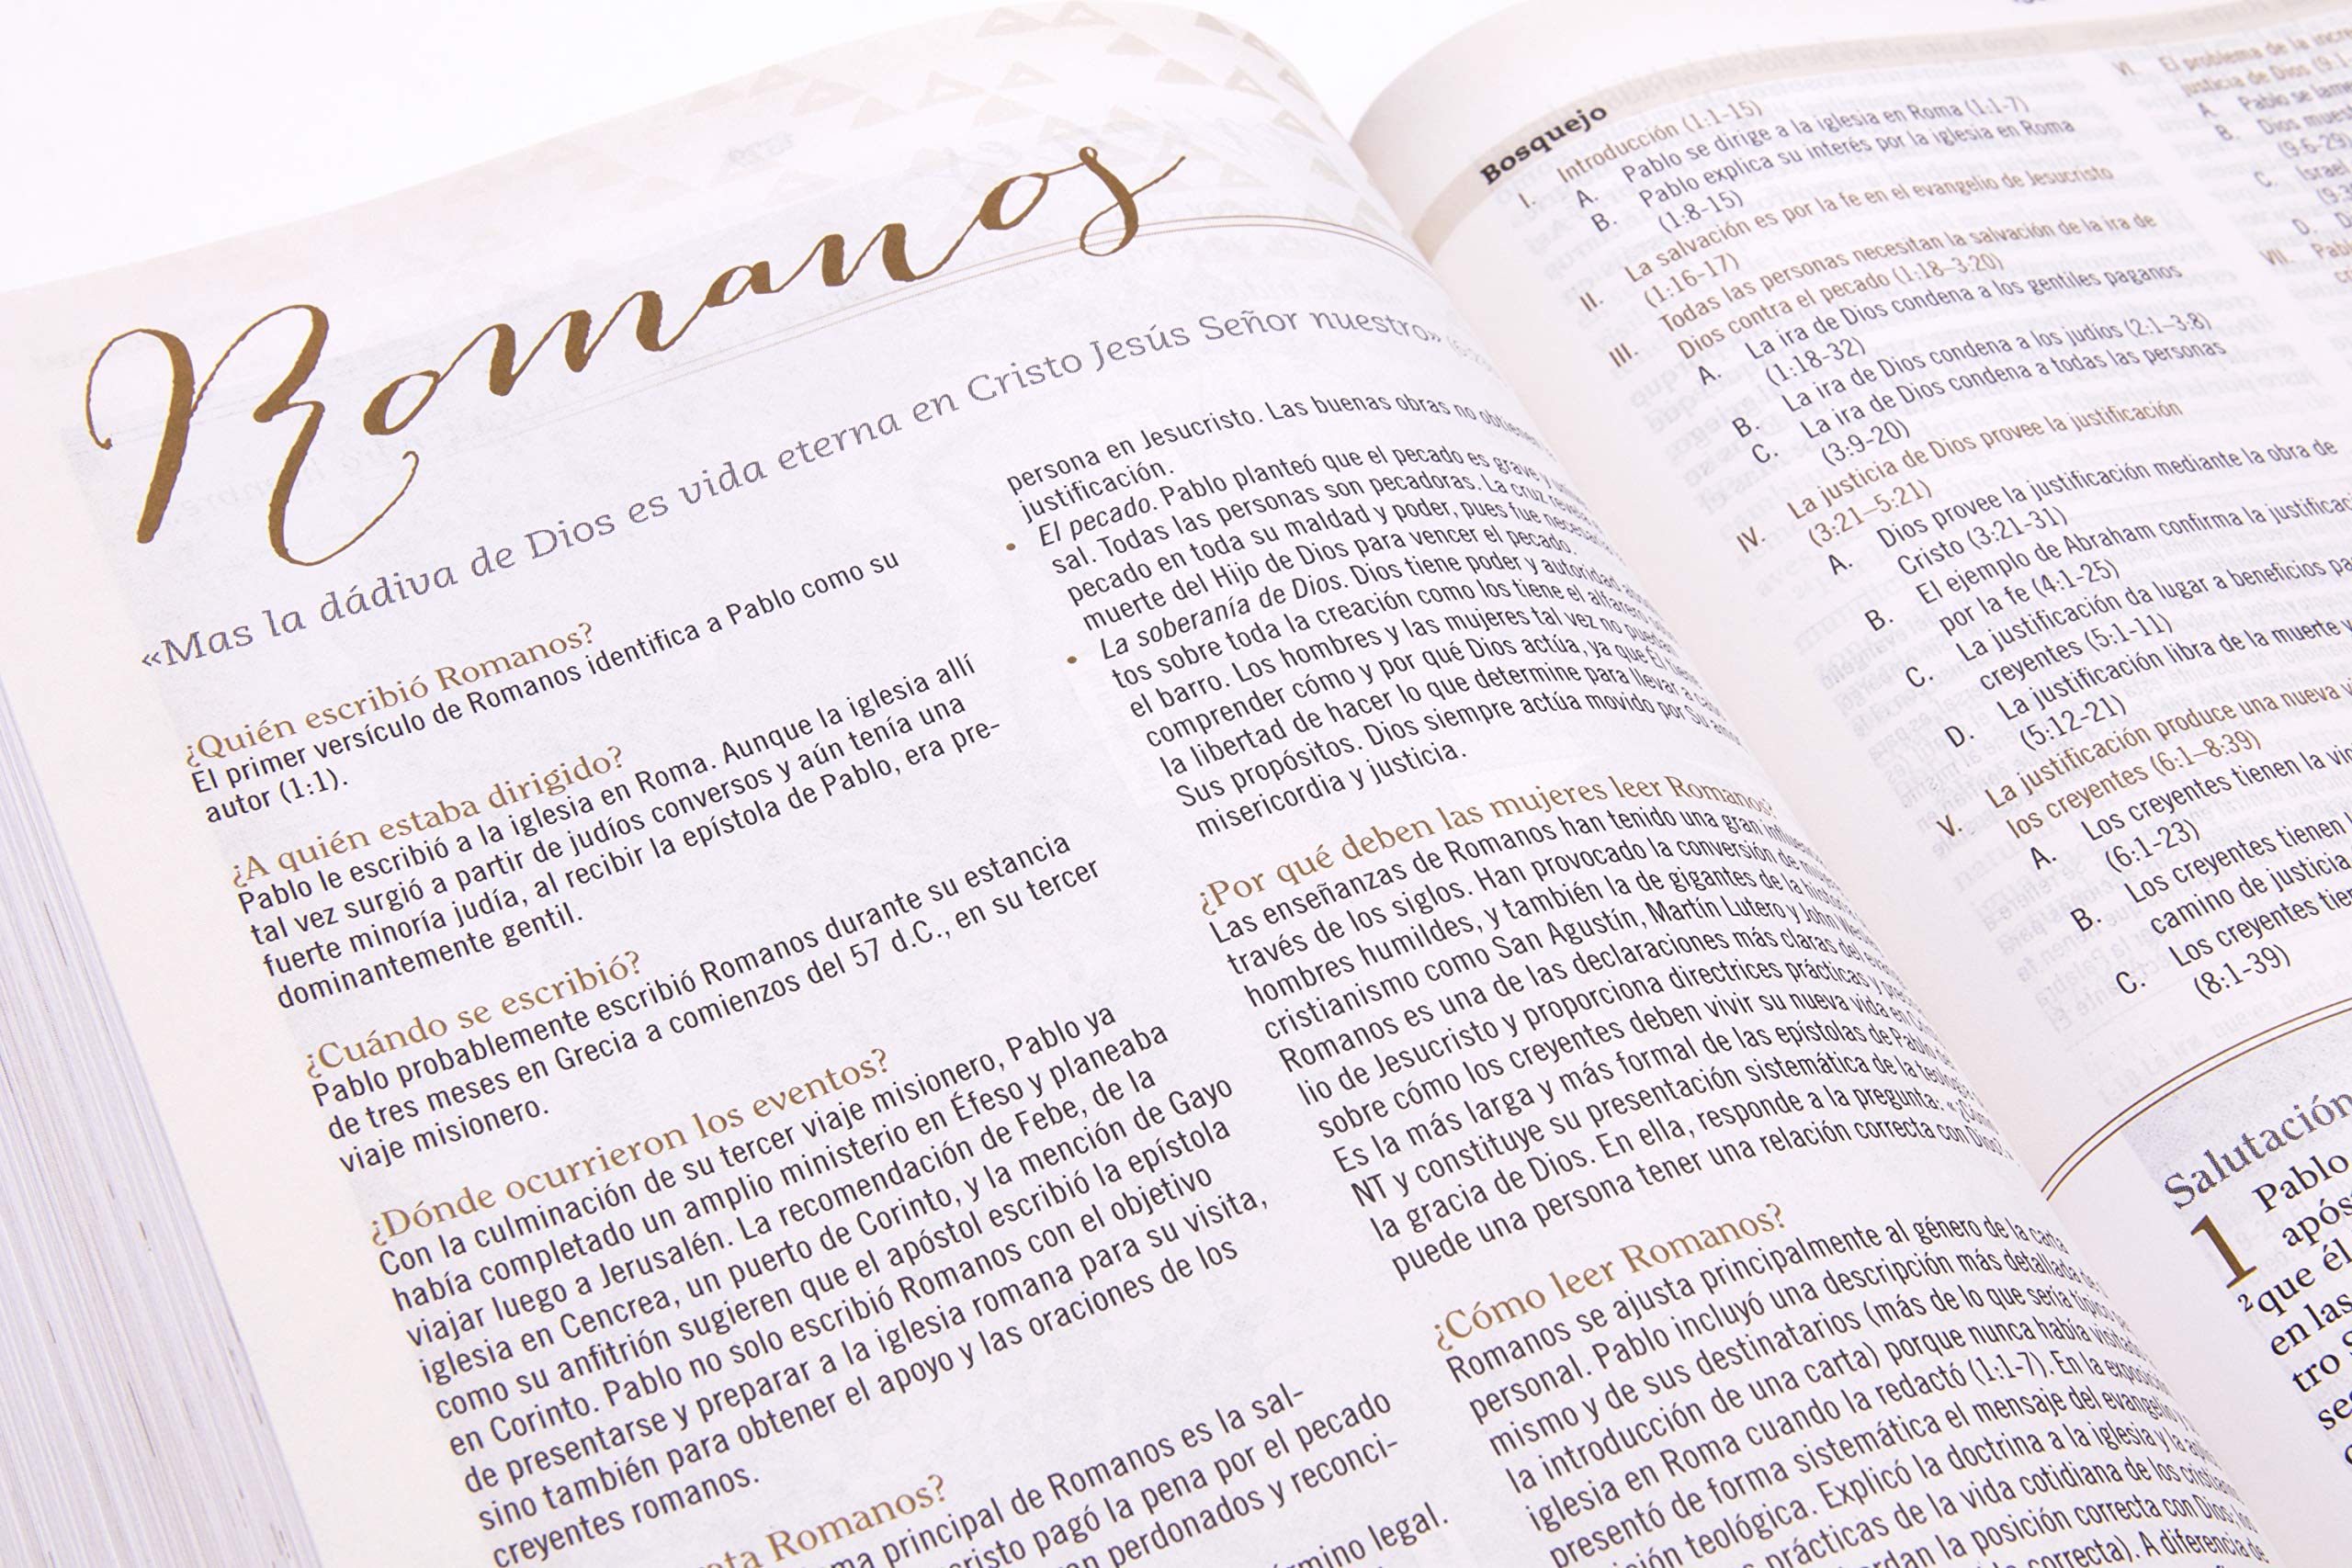 Romanos
«Mas la dádiva de Dios es vida eterna en Cristo Jesús Señor nuestro»
¿Quién escribió Romanos?
El primer versículo de Romanos identifica a Pablo como su
autor (1:1).
¿A quién estaba dirigido?
Pablo le escribió a la iglesia en Roma. Aunque la iglesia allí
tal vez surgió a partir de judíos conversos y aún tenía una
fuerte minoría judía, al recibir la epístola de Pablo, era pre-
dominantemente gentil.
¿Cuándo se escribió?
Pablo probablemente escribió Romanos durante su estancia
de tres meses en Grecia a comienzos del 57 d.C., en su tercer
viaje misionero.
¿Dónde ocurrieron los eventos?
Con la culminación de su tercer viaje misionero, Pablo ya
había completado un amplio ministerio en Éfeso y planeaba
viajar luego a Jerusalén. La recomendación de Febe, de la
iglesia en Cencrea, un puerto de Corinto, y la mención de Gayo
como su anfitrión sugieren que el apóstol escribió la epístola
en Corinto. Pablo no solo escribió Romanos con el objetivo
de presentarse y preparar a la iglesia romana para su visita,
sino también para obtener el apoyo y las oraciones de los
creyentes romanos.
Romanos?
principal de Romanos es la sal-
pagó la pena por el pecado
perdonados y reconci-
legal.
persona en Jesucristo. Las buenas obras no
justificación.
• El pecado. Pablo planteó que el pecado es grave
sal. Todas las personas son pecadoras. La cruz
pecado en toda su maldad y poder, pues fue
muerte del Hijo de Dios para vencer el pecado.
• La soberanía de Dios. Dios tiene poder y autoridad
tos sobre toda la creación como los tiene el alfarero
el barro. Los hombres y las mujeres tal vez no
comprender cómo y por qué Dios actúa, ya que Él
la libertad de hacer lo que determine para llevar a
Sus propósitos. Dios siempre actúa movido por Su
misericordia y justicia.
¿Por qué deben las mujeres leer Romanos?
Las enseñanzas de Romanos han tenido una gran
través de los siglos. Han provocado la conversión de
hombres humildes, y también la de gigantes de la
cristianismo como San Agustín, Martín Lutero y John
Romanos es una de las declaraciones más claras del
lio de Jesucristo y proporciona directrices prácticas y
sobre cómo los creyentes deben vivir su nueva vida en
Es la más larga y más formal de las epístolas de Pablo
NT y constituye su presentación sistemática de la
la gracia de Dios. En ella, responde a la pregunta:
puede una persona tener una relación correcta con Dios?
¿Cómo leer Romanos?
Romanos se ajusta principalmente al género de la carta
personal. Pablo incluyó una descripción más detallada de
mismo y de sus destinatarios (más de lo que sería típico
la introducción de una carta) porque nunca había
iglesia en Roma cuando la redactó (1:1-7). En la
presentó de forma sistemática el mensaje del evangelio
teológica. Explicó la doctrina a la iglesia y la
prácticas de la vida cotidiana de los
la posición correcta con Dios
correcta). A diferencia de
Bosquejo
I. Introducción (1:1-15)
A. Pablo se dirige a la iglesia en Roma (1:1-7)
B. Pablo explica su interés por la iglesia en Roma
(1:8-15)
II. La salvación es por la fe en el evangelio de Jesucristo
(1:16-17)
III. Todas las personas necesitan la salvación de la ira de
Dios contra el pecado (1:18–3:20)
A. La ira de Dios condena a los gentiles paganos
(1:18-32)
B. La ira de Dios condena a los judíos (2:1–3:8)
C. La ira de Dios condena a todas las personas
(3:9-20)
IV. La justicia de Dios provee la justificación
(3:21–5:21)
A. Dios provee la justificación mediante la obra de
Cristo (3:21-31)
B. El ejemplo de Abraham confirma la
por la fe (4:1-25)
C. La justificación da lugar a beneficios
creyentes (5:1-11)
D. La justificación libra de la muerte y
(5:12-21)
V. La justificación produce una nueva
los creyentes (6:1–8:39)
A. Los creyentes tienen la
(6:1-23)
B. Los creyentes tienen
camino de justicia
C. Los creyentes
(8:1-39)
VI. El problema de la
justicia de Dios
A. Pablo se
B. Dios
(9:6-29)
C. Israel
D.
VII.
Salutación
1 Pablo
2 que él
en las